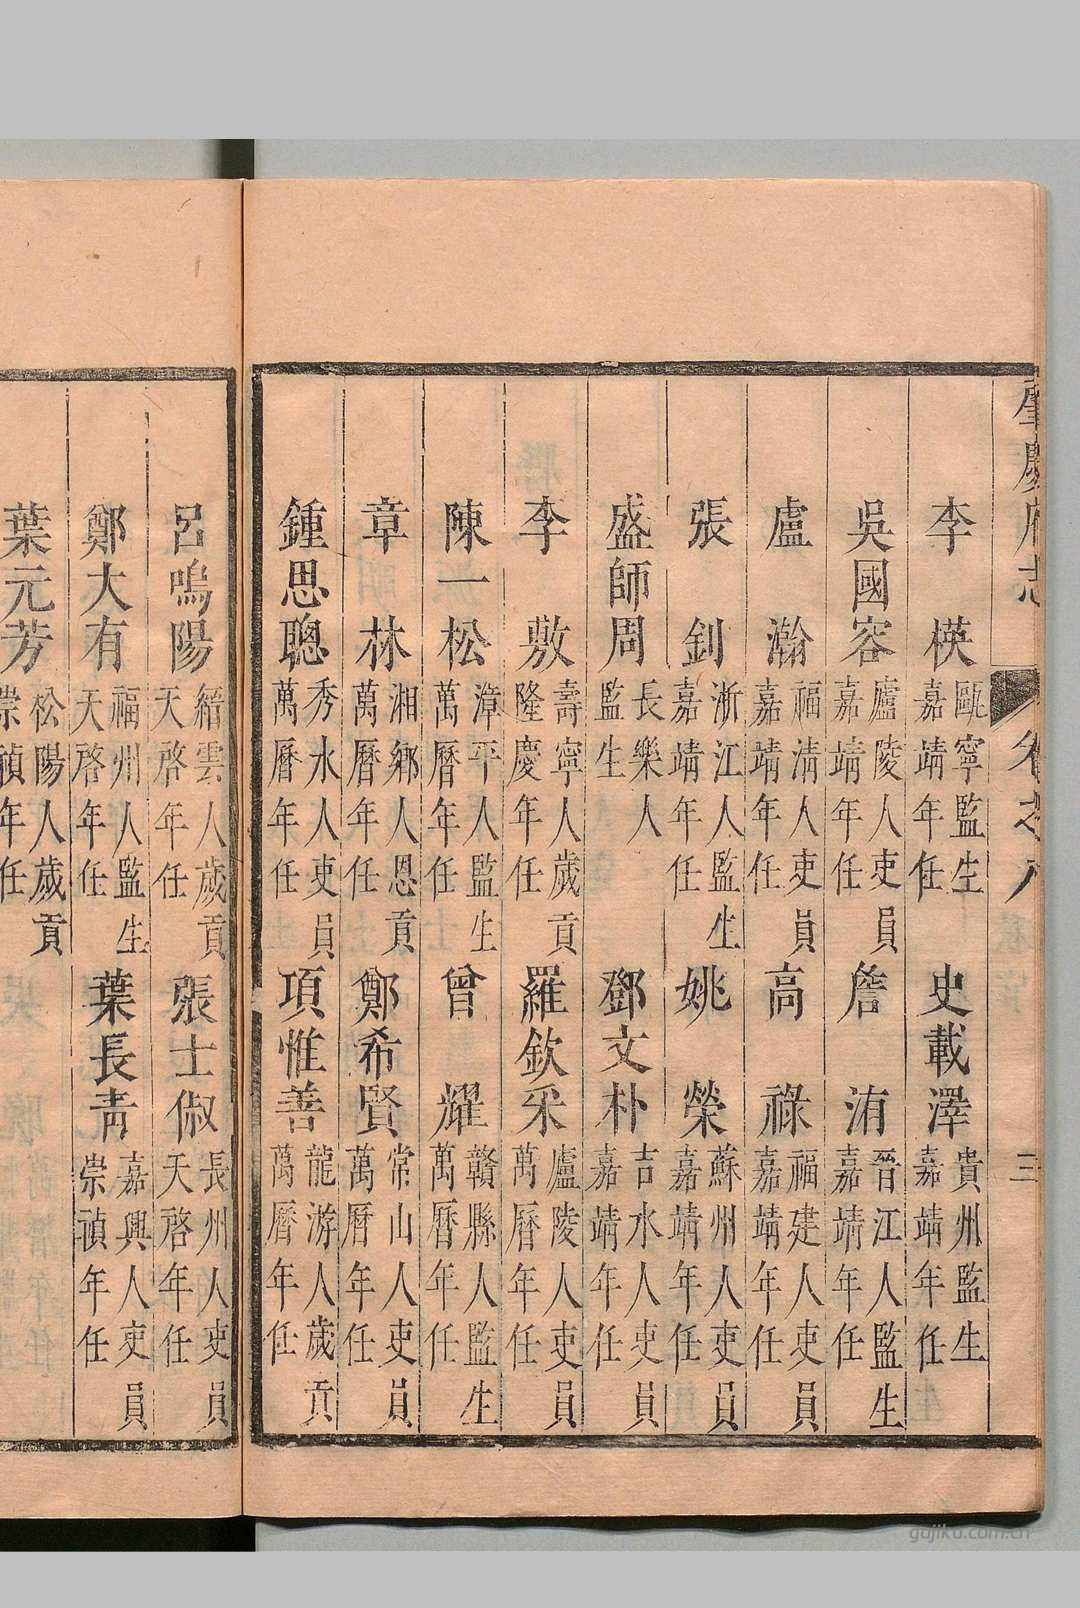 肇慶府志
卷之八
三
李模 甌寧監生 嘉靖年任
史載澤 貴州監生 嘉靖年任
吳國容 廬陵人吏員 嘉靖年任
詹洧 晉江人監生 嘉靖年任
盧瀚 福清人吏員 嘉靖年任
高祿 福建人吏員 嘉靖年任
張釗 浙江人監生 嘉靖年任
姚榮 蘇州人吏員 嘉靖年任
盛師周 長樂人 監生
鄧文朴 吉水人吏員 嘉靖年任
李敷 壽寧人歲貢 隆慶年任
羅欽采 廬陵人吏員 萬曆年任
陳一松 漳平人監生 萬曆年任
曾耀 贛縣人監生 萬曆年任
章林 湘鄉人恩貢 萬曆年任
鄭希賢 常山人吏員 萬曆年任
鍾思聰 秀水人吏員 萬曆年任
項惟善 龍游人歲貢 萬曆年任
呂鳴陽 縉雲人歲貢 天啓年任
張士俶 長州人吏員 天啓年任
鄭大有 福州人監生 天啓年任
葉長青 嘉興人吏員 崇禎年任
葉元芳 松陽人歲貢 崇禎年任
gujiku.com.cn